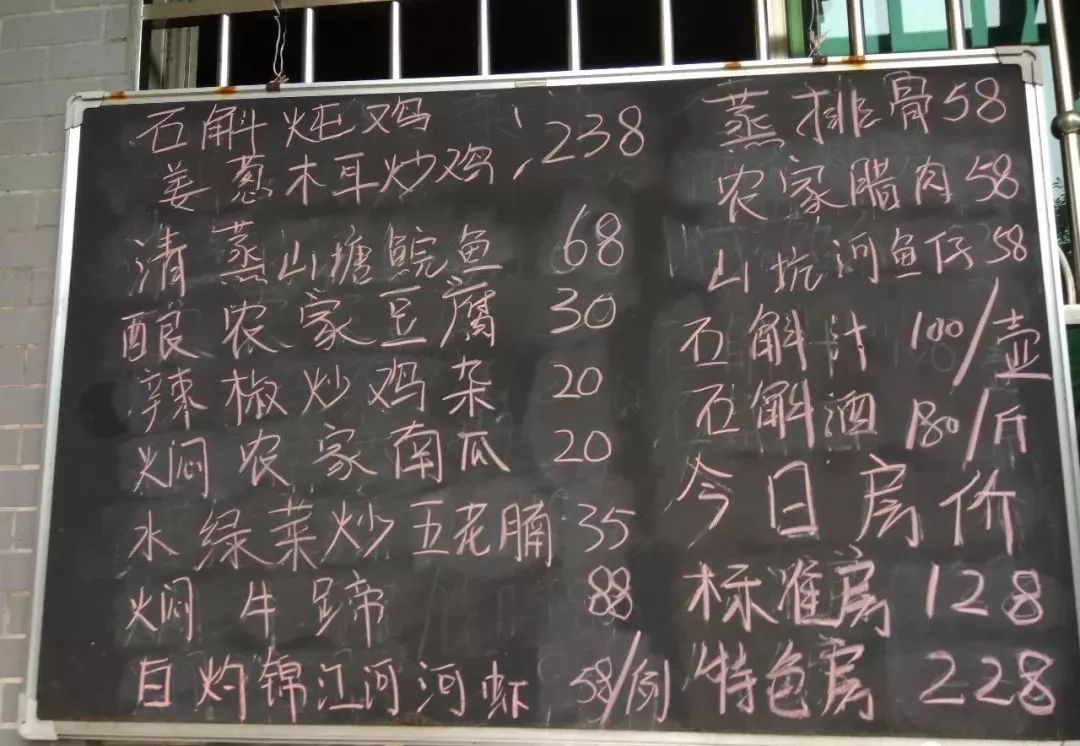 石斛炖鸡
姜葱木耳炒鸡, 238
清蒸山塘鲩鱼 68
酿农家豆腐 30
辣椒炒鸡杂 20
焖农家南瓜 20
水绿菜炒五花腩 35
焖牛蹄 88
白灼锦江河河虾 58/例
蒸排骨58
农家腊肉58
山坑河鱼仔58
石斛汁 100/壶
石斛酒 180/斤
今日房价
标准房 128
特色房 228